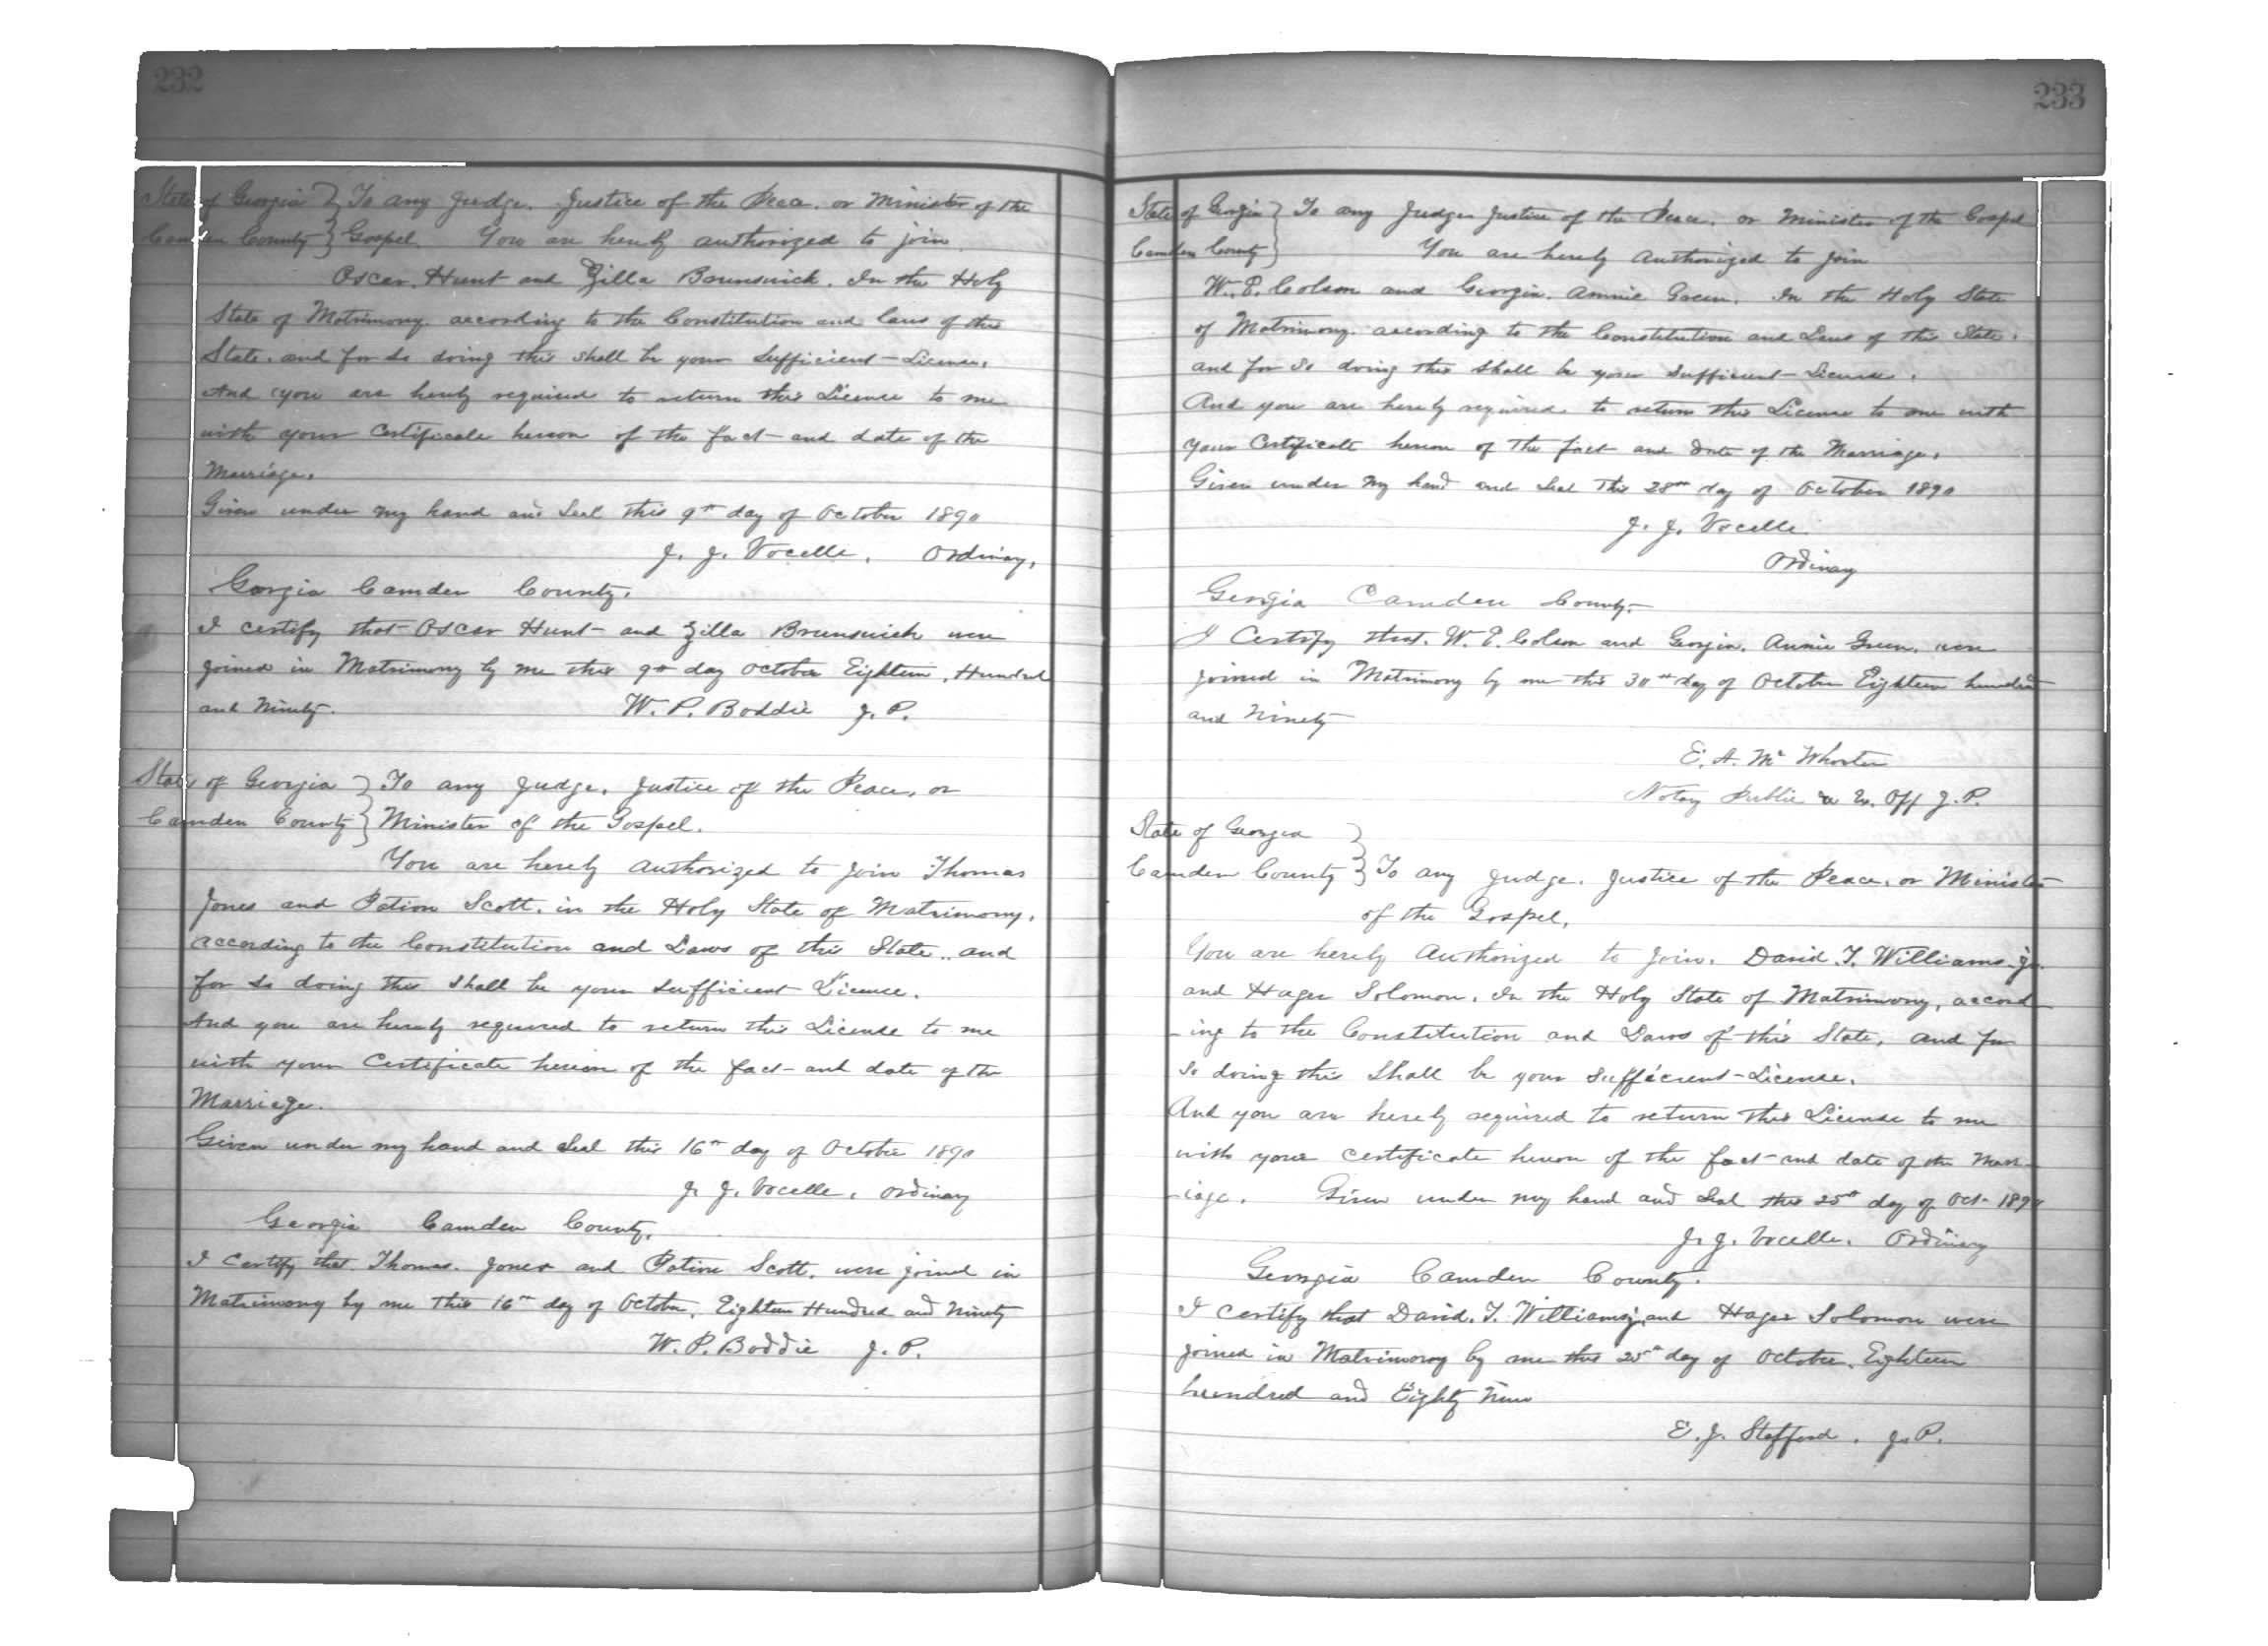 232
State of Georgia } To any Judge. Justice of the Peace. or Minister of the
Camden County } Gospel. You are hereby authorized to join
Oscar. Hunt and Zilla Brunswick. In the Holy
State of Matrimony. according to the Constitution and laws of this
State. and for so doing this shall be your sufficient License.
And you are hereby required to return this License to me
with your Certificate hereon of the fact and date of the
Marriage.
Given under my hand and Seal this 9th day of October 1890
J. J. Vocelle. Ordinary,
Georgia Camden County.
I certify that Oscar Hunt and Zilla Brunswick were
joined in Matrimony by me this 9th day October Eighteen, Hundred
and Ninety. W. P. Boddie J. P.
State of Georgia } To any Judge. Justice of the Peace, or
Camden County } Minister of the Gospel.
You are hereby authorized to join Thomas
Jones and Pation Scott. in the Holy State of Matrimony.
according to the Constitution and Laws of this State.. and
for so doing this shall be your sufficient License.
And you are hereby required to return this License to me
with your Certificate hereon of the fact and date of the
Marriage.
Given under my hand and Seal this 16th day of October 1890
J. J. Vocelle. Ordinary
Georgia Camden County.
I certify that. Thomas. Jones and Scott. were joined in
Matrimony by me this 16th day of October. Eighteen Hundred and Ninety
W. P. Boddie J. P.
233
State of Georgia } To any Judge Justice of the Peace. or Minister of the Gospel
Camden County } You are hereby authorized to join
W. E. Colson and Georgia. Annie Green. In the Holy State
of Matrimony. according to the Constitution and Laws of this State.
and for so doing this shall be your sufficient License.
And you are hereby required to return this License to me with
your Certificate hereon of the fact and date of the Marriage.
Given under my hand and Seal this 28th day of October 1890
J. J. Vocelle.
Ordinary
Georgia Camden County.
I Certify that. W. E. Colson and Georgia. Annie Green. were
joined in Matrimony by me this 30th day of October Eighteen hundred
and Ninety
E. A. Mc Whorter
Notary Public & Ex. Off J. P.
State of Georgia }
Camden County } To any Judge. Justice of the Peace. or Minister
of the Gospel.
You are hereby authorized to join. David. T. Williams. Jr.
and Hager Solomon. In the Holy State of Matrimony, accord
-ing to the Constitution and Laws of this State, and for
so doing this shall be your sufficient License.
And you are hereby required to return this License to me
with your certificate hereon of the fact and date of the Marr-
-iage. Given under my hand and Seal this 25th day of Oct
J. J. Vocelle. Ordinary
Georgia Camden County.
I certify that David. T. Williams jr and Hager Solomon were
joined in Matrimony by me this 25th day of October. Eighteen
hundred and Eighty Nine
E. J. Stafford. J. P.